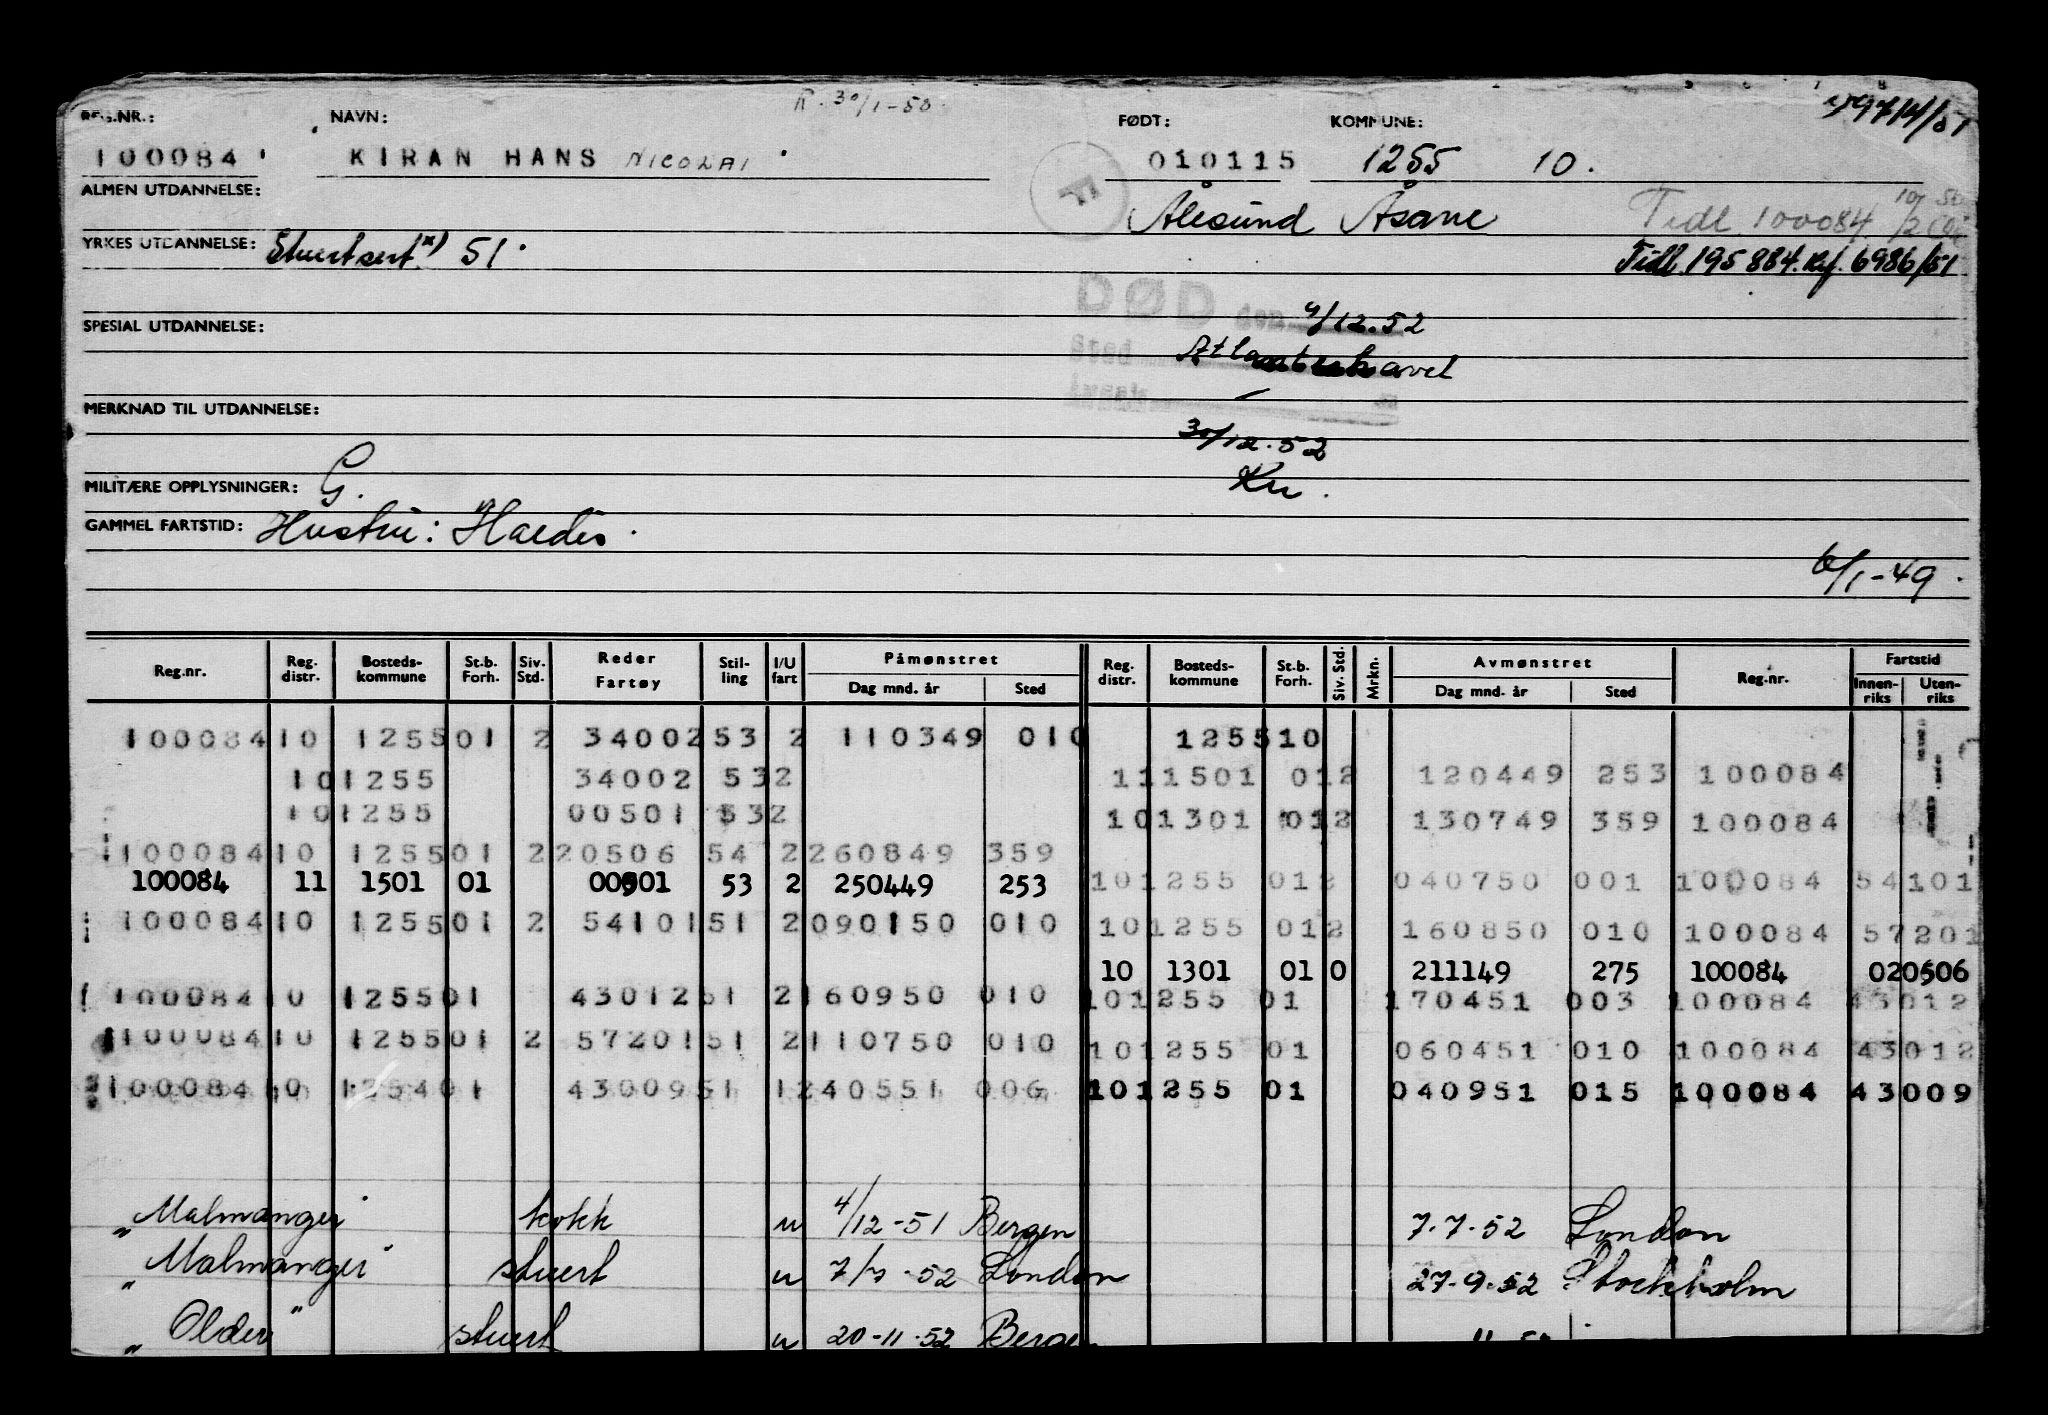 R. 30/1-50.
REG.NR.: NAVN: FØDT: KOMMUNE:
100084 KIRAN HANS NICOLAI 010115 1255 10.
ALMEN UTDANNELSE: Ålesund Åsane Tidl. 100084
YRKES UTDANNELSE: Stuertsert.x) 51. Tidl. 195884. Ref. 6986/51
DØD den 4/12.52
SPESIAL UTDANNELSE:
Sted Atlanterhavet
Årsak –
MERKNAD TIL UTDANNELSE:
30/12.52
MILITÆRE OPPLYSNINGER: G. Kn.
GAMMEL FARTSTID: Hustru: Haldis.
6/1-49.
Reg.nr. Reg. distr. Bosteds-kommune St.b. Forh. Siv. Std. Reder Fartøy Stil-ling I/U fart Påmønstret Dag mnd. år Sted Reg. distr. Bosteds-kommune St.b. Forh. Siv. Std. Mrkn. Avmønstret Dag mnd. år Sted Reg.nr. Fartstid Innen-riks Uten-riks
100084 10 1255 01 2 34002 53 2 110349 010 1255 10
10 1255 34002 53 2 11 1501 01 2 120449 253 100084
10 1255 00501 53 2 10 1301 01 2 130749 359 100084
100084 10 1255 01 2 20506 54 2 260849 359
100084 11 1501 01 00501 53 2 250449 253 10 1255 01 2 040750 001 100084 54101
100084 10 1255 01 2 54101 51 2 090150 010 10 1255 01 2 160850 010 100084 57201
10 1301 01 0 211149 275 100084 020506
100084 10 1255 01 43012 51 2 160950 010 10 1255 01 170451 003 100084 43012
100084 10 1255 01 2 57201 51 2 110750 010 10 1255 01 060451 010 100084 43012
100084 10 1254 01 43009 51 1 240551 006 10 1255 01 040951 015 100084 43009
„Malmanger" kokk u 4/12-51 Bergen 7.7.52 London
„Malmanger" stuert u 7/7-52 London 27.9.52 Stockholm
„Olden" stuert u 20-11-52 Bergen